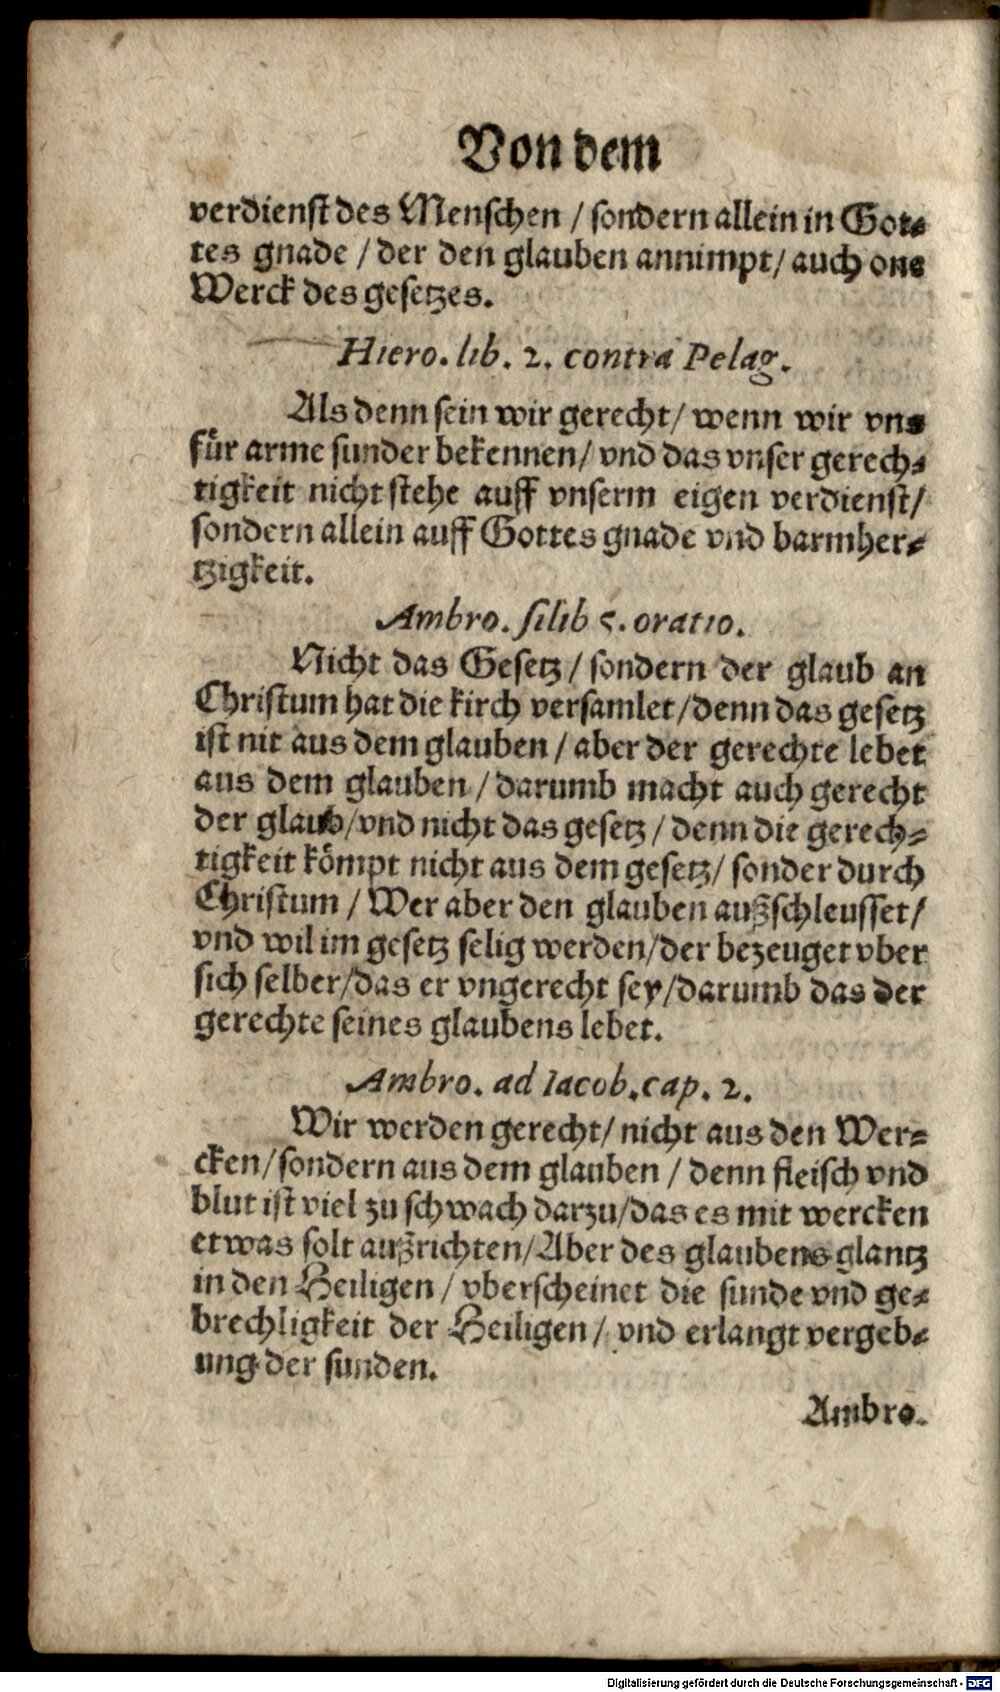 Von dem
verdienst des Menschen / sondern allein in Got⸗
tes gnade / der den glauben annimpt / auch one
Werck des gesetzes.
Hiero. lib. 2. contra Pelag.
Als denn sein wir gerecht / wenn wir vns
fuͤr arme sunder bekennen / vnd das vnser gerech⸗
tigkeit nicht stehe auff vnserm eigen verdienst /
sondern allein auff Gottes gnade vnd barmher⸗
tzigkeit.
Ambro. silib 5. oratio.
Nicht das Gesetz / sondern der glaub an
Christum hat die kirch versamlet / denn das gesetz
ist nit aus dem glauben / aber der gerechte lebet
aus dem glauben / darumb macht auch gerecht
der glaub / vnd nicht das gesetz / denn die gerech⸗
tigkeit koͤmpt nicht aus dem gesetz / sonder durch
Christum / Wer aber den glauben außschleusset /
vnd wil im gesetz selig werden / der bezeuget vber
sich selber / das er vngerecht sey / darumb das der
gerechte seines glaubens lebet.
Ambro. ad Iacob. cap. 2.
Wir werden gerecht / nicht aus den Wer⸗
cken / sondern aus dem glauben / denn fleisch vnd
blut ist viel zu schwach darzu / das es mit wercken
etwas solt außrichten / Aber des glaubens glantz
in den Heiligen / vberscheinet die sunde vnd ge⸗
brechligkeit der Heiligen / vnd erlangt vergeb⸗
ung der sunden.
Ambro.
Digitalisierung gefördert durch die Deutsche Forschungsgemeinschaft - DFG